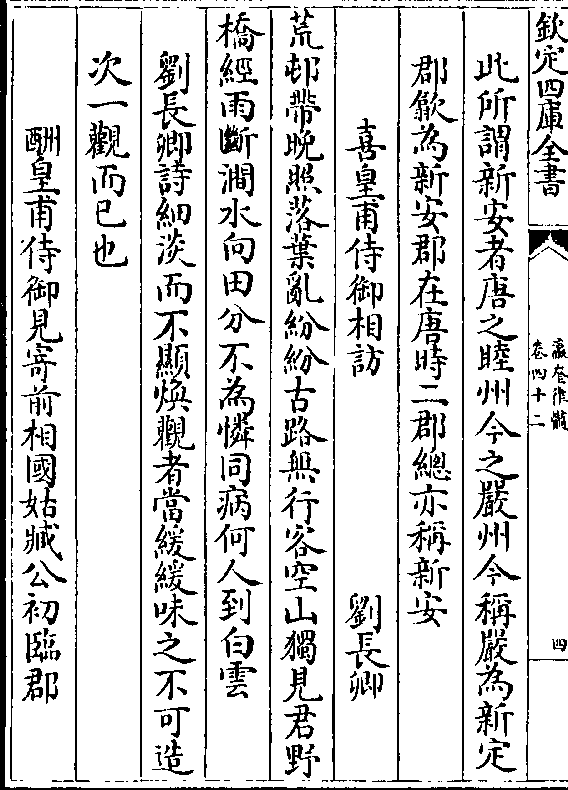 欽定四庫全書
瀛奎律髓
卷四十二
四
此所謂新安者唐之睦州今之嚴州今稱嚴為新定
郡歙為新安郡在唐時二郡總亦稱新安
喜皇甫侍御相訪 劉長卿
荒邨帶晚照落葉亂紛紛古路無行客空山獨見君野
橋經雨斷澗水向田分不為憐同病何人到白雲
劉長卿詩細淡而不顯煥觀者當緩緩味之不可造
次一觀而已也
酬皇甫侍御見寄前相國姑臧公初臨郡